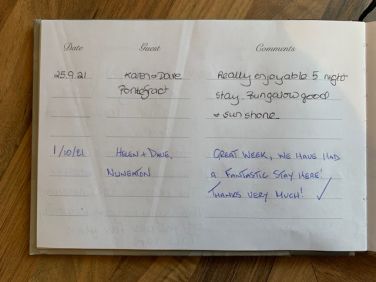 Date Guest Comments
25.9.21 Karen & Dave Really enjoyable 5 night
Pontefract stay. Bungalow good
& sun shone.
1/10/21 HELEN + DAVE, GREAT WEEK, WE HAVE HAD
NUNEATON A FANTASTIC STAY HERE!
THANKS VERY MUCH!